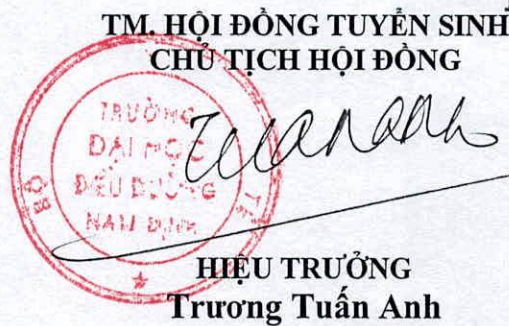 TM. HỘI ĐỒNG TUYỂN SINH
CHỦ TỊCH HỘI ĐỒNG
BỘ Y TẾ
TRƯỜNG
ĐẠI HỌC
ĐIỀU DƯỠNG
NAM ĐỊNH
HIỆU TRƯỞNG
Trương Tuấn Anh